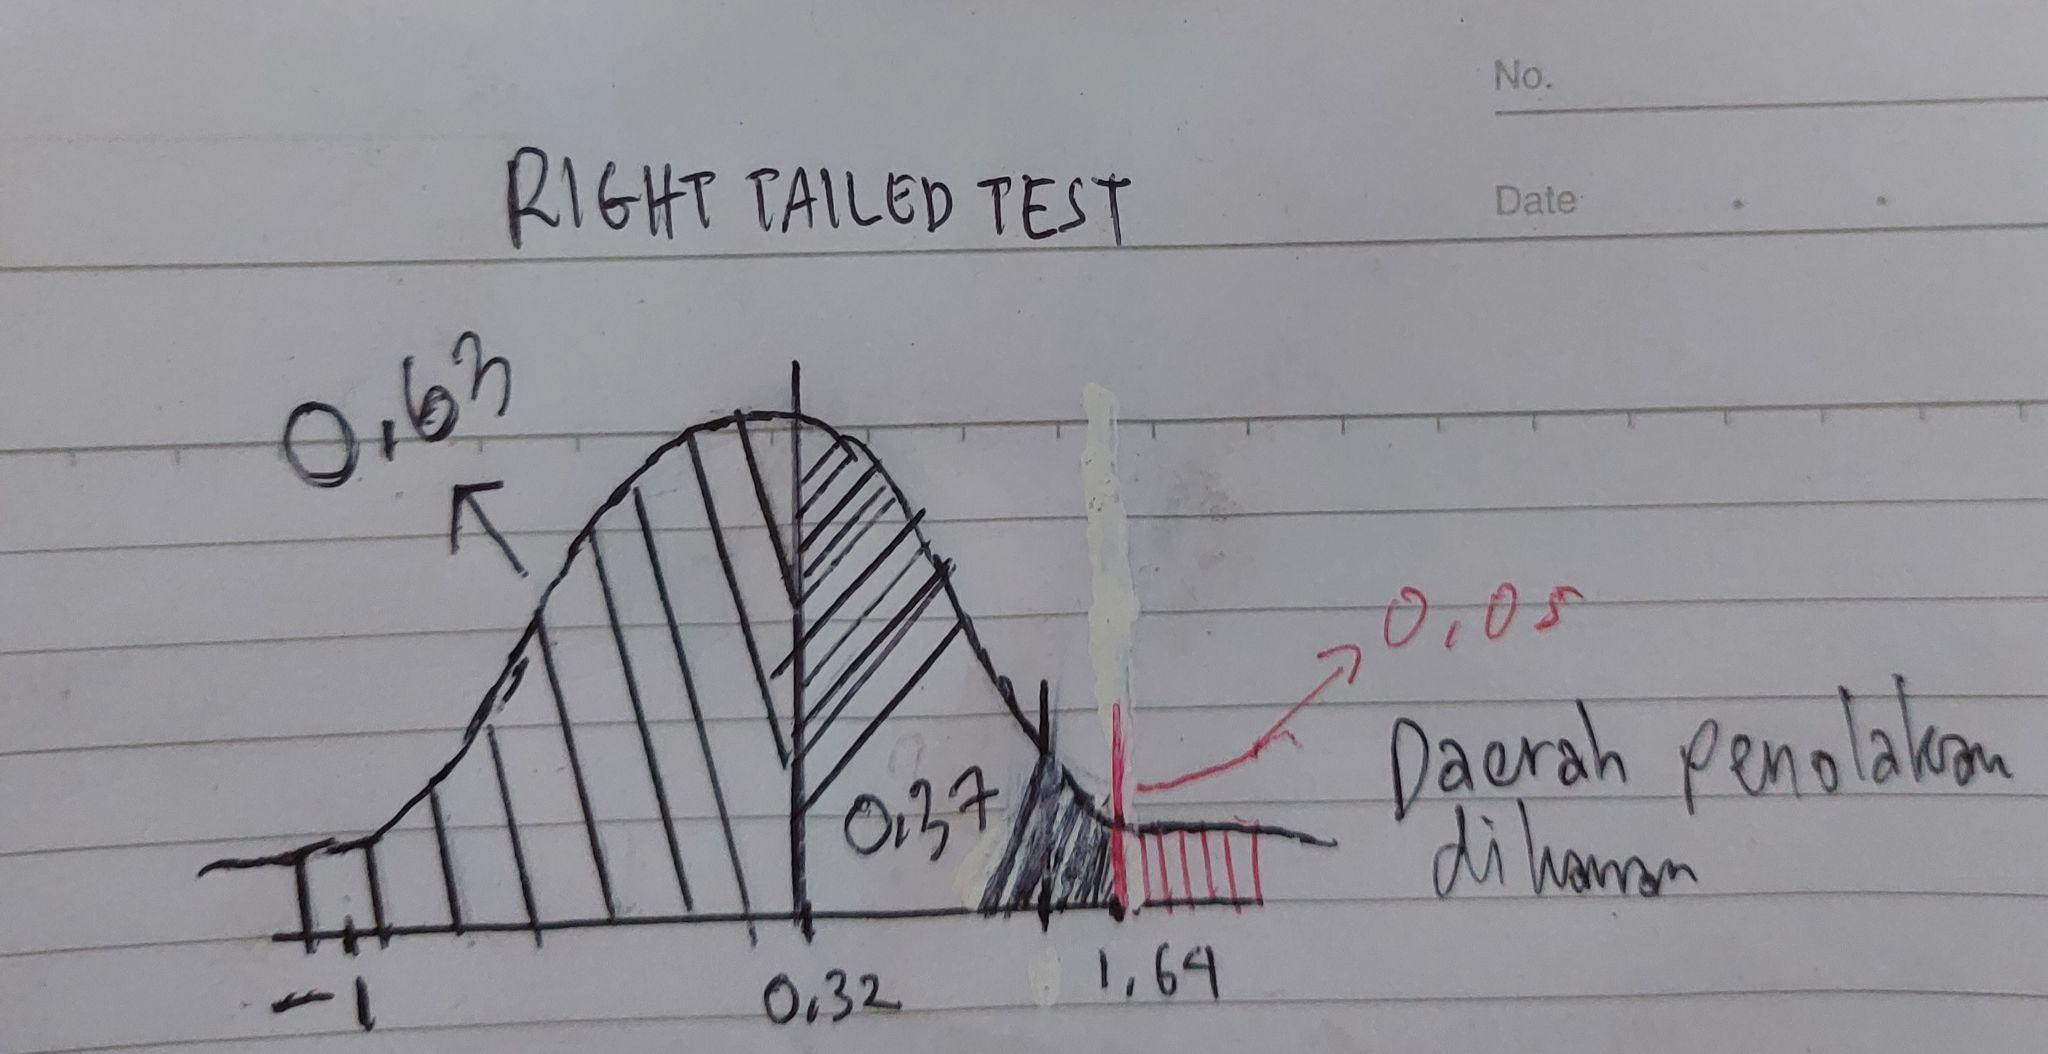 No.
Date
RIGHT TAILED TEST
0,63
0,05
Daerah penolakan
dikanan
0,37
-1
0,32
1,64